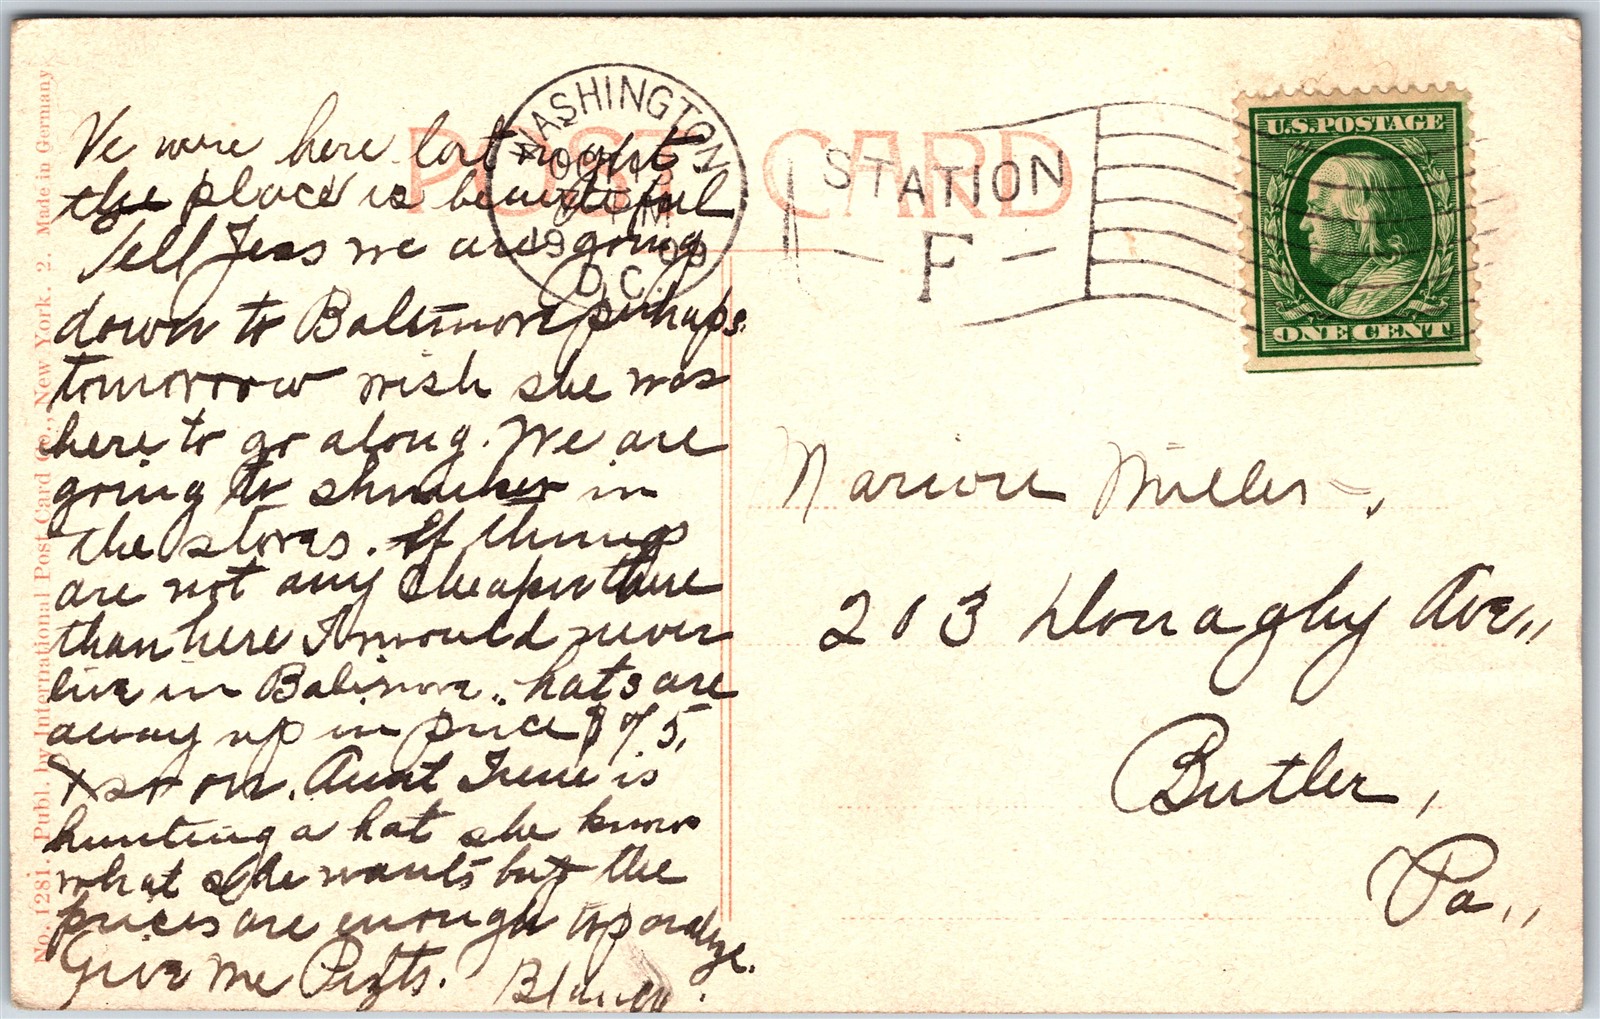 POST CARD
WASHINGTON
D.C.
STATION
F
U.S. POSTAGE
ONE CENT
No. 1281. Publ. by International Post Card Co., New York. 2. Made in Germany
We were here last night
the place is beautiful
Tell Jess we are going
down to Baltimore perhaps
tomorrow wish she was
here to go along. We are
going to in
the stores. If things
are not any cheaper there
than here I would never
live in Balimore. hats are
away up in price $ 75,
& so on. Aunt Irene is
hunting a hat she knows
what she wants but the
prices are enough to paralyze.
Give me Pgts. Blanch.
Marion Miller,
203 Donaghy Ave,,
Butler,
Pa,,